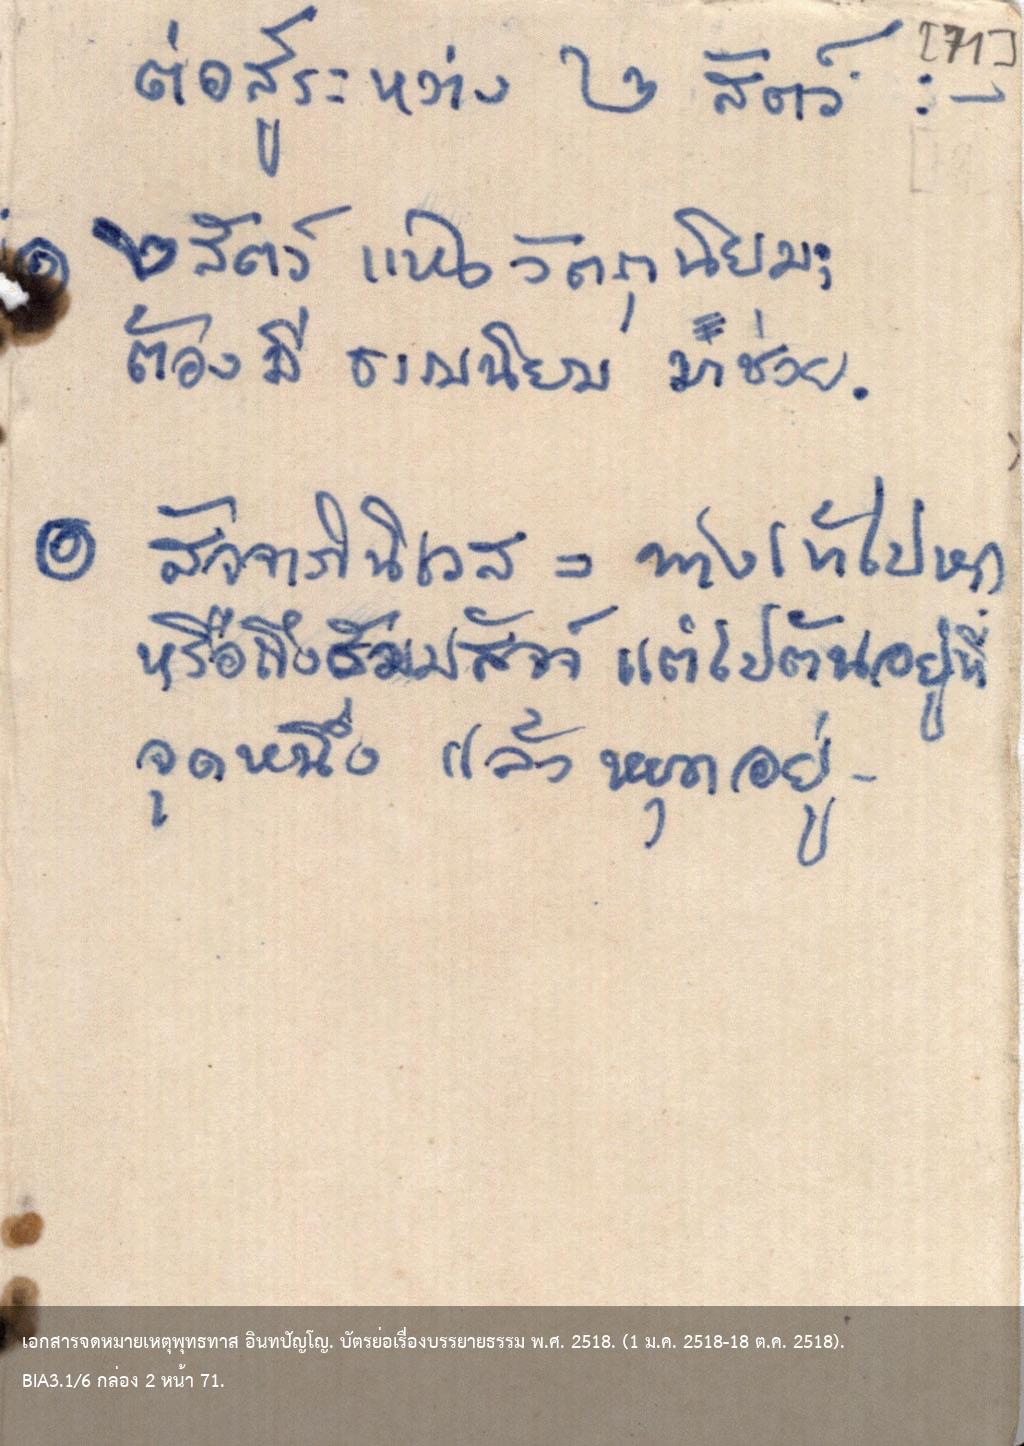 [71]
ต่อสู้ระหว่าง ๒ สัตว์ :-
๑ ๒ สัตว์ แห่ง วัตถุนิยม;
ต้องมี ธรรมนิยม มาช่วย.
๑ สัจจาภินิเวส = ทางเข้าไปหา
หรือถึง สัจจ์ แต่ไปตันอยู่ที่
จุดหนึ่ง แล้วหยุดอยู่ -
เอกสารจดหมายเหตุพุทธทาส อินทปัญโญ. บัตรย่อเรื่องบรรยายธรรม พ.ศ. 2518. (1 ม.ค. 2518-18 ต.ค. 2518).
BIA3.1/6 กล่อง 2 หน้า 71.